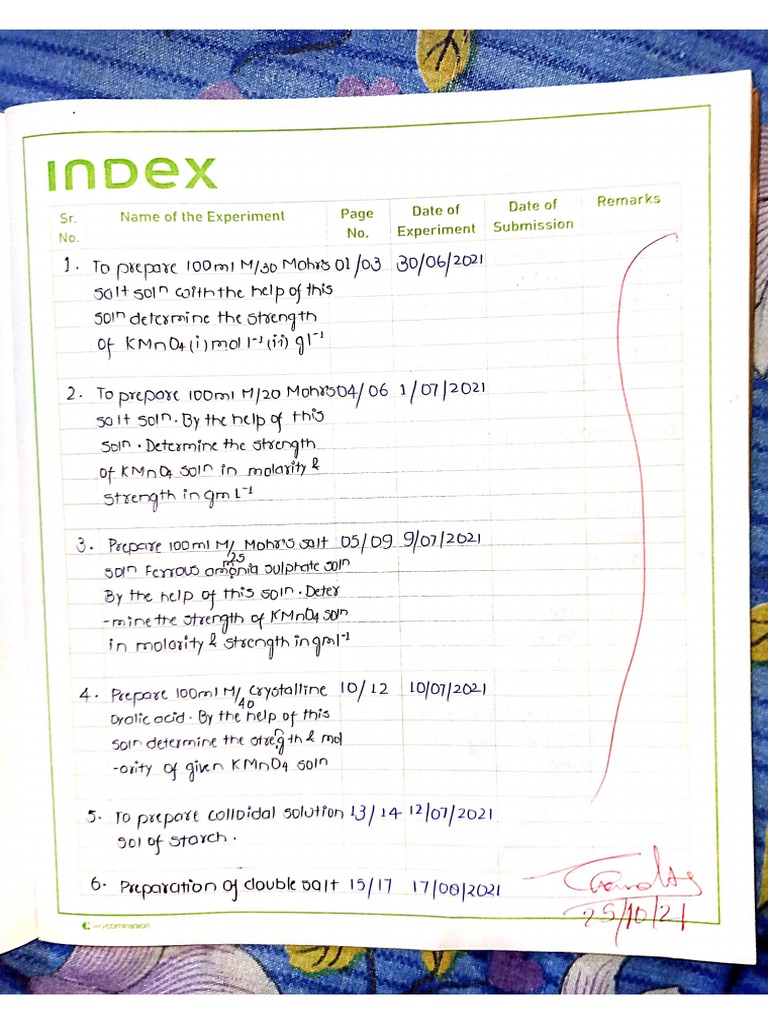 INDEX
Sr. No. Name of the Experiment Page No. Date of Experiment Date of Submission Remarks
1. To prepare 100ml M/30 Mohr's 01/03 30/06/2021
salt soln with the help of this
soln determine the strength
of KMnO4 (i) mol l⁻¹ (ii) gl⁻¹
2. To prepare 100ml M/20 Mohr's 04/06 1/07/2021
salt soln. By the help of this
soln. Determine the strength
of KMnO4 soln in molarity &
strength in gm l⁻¹
3. Prepare 100ml M/25 Mohr's salt 05/09 9/07/2021
soln Ferrous amonia sulphate soln
By the help of this soln. Deter
-mine the strength of KMnO4 soln
in molarity & strength in gml⁻¹
4. Prepare 100ml M/40 Crystalline 10/12 10/07/2021
Oxalic acid. By the help of this
soln determine the strength & mol
-arity of given KMnO4 soln
5. To prepare colloidal solution 13/14 12/07/2021
sol of starch.
6. Preparation of double salt 15/17 17/08/2021
25/10/21